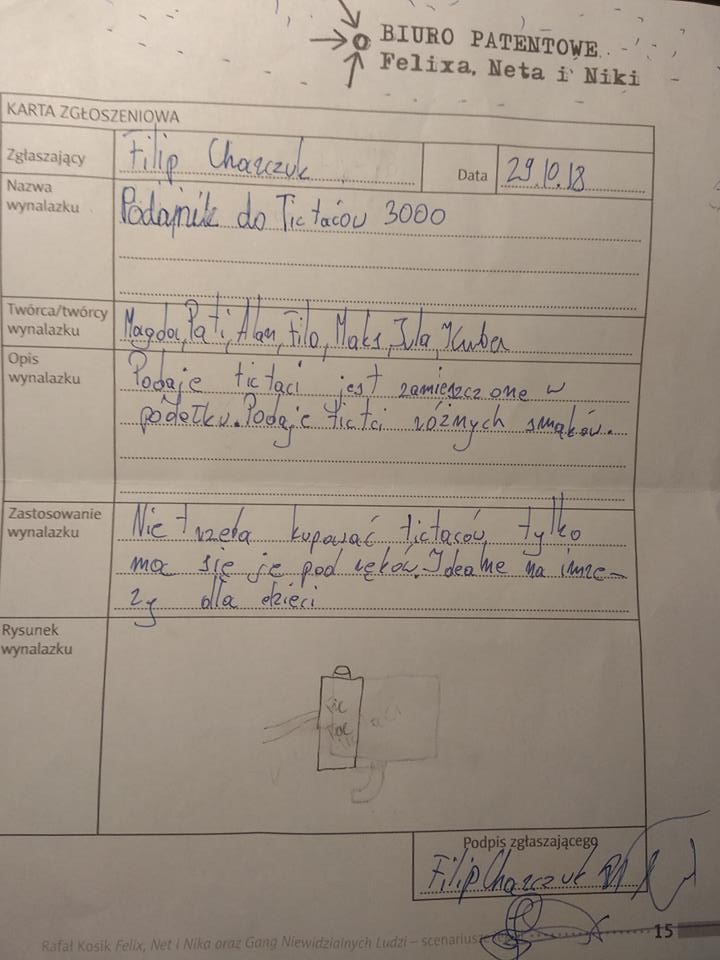 BIURO PATENTOWE
Felixa, Neta i Niki
KARTA ZGŁOSZENIOWA
Zgłaszający Filip Charczuk Data 29.10.18
Nazwa wynalazku
Podajnik do Tictaców 3000
Twórca/twórcy wynalazku
Magda, Pati, Alan, Filo, Maks, Jula, Kuba
Opis wynalazku
Podaje tictaci jest zamieszczone w
pudełku. Podaje tictci różnych smaków.
Zastosowanie wynalazku
Nie trzeba kupować tictaców, tylko
ma się je pod ręków. Idealne na impre-
zy dla dzieci
Rysunek wynalazku
Tic
Tac
Podpis zgłaszającego
Filip Charczuk
Rafał Kosik Felix, Net i Nika oraz Gang Niewidzialnych Ludzi – scenariusze
15